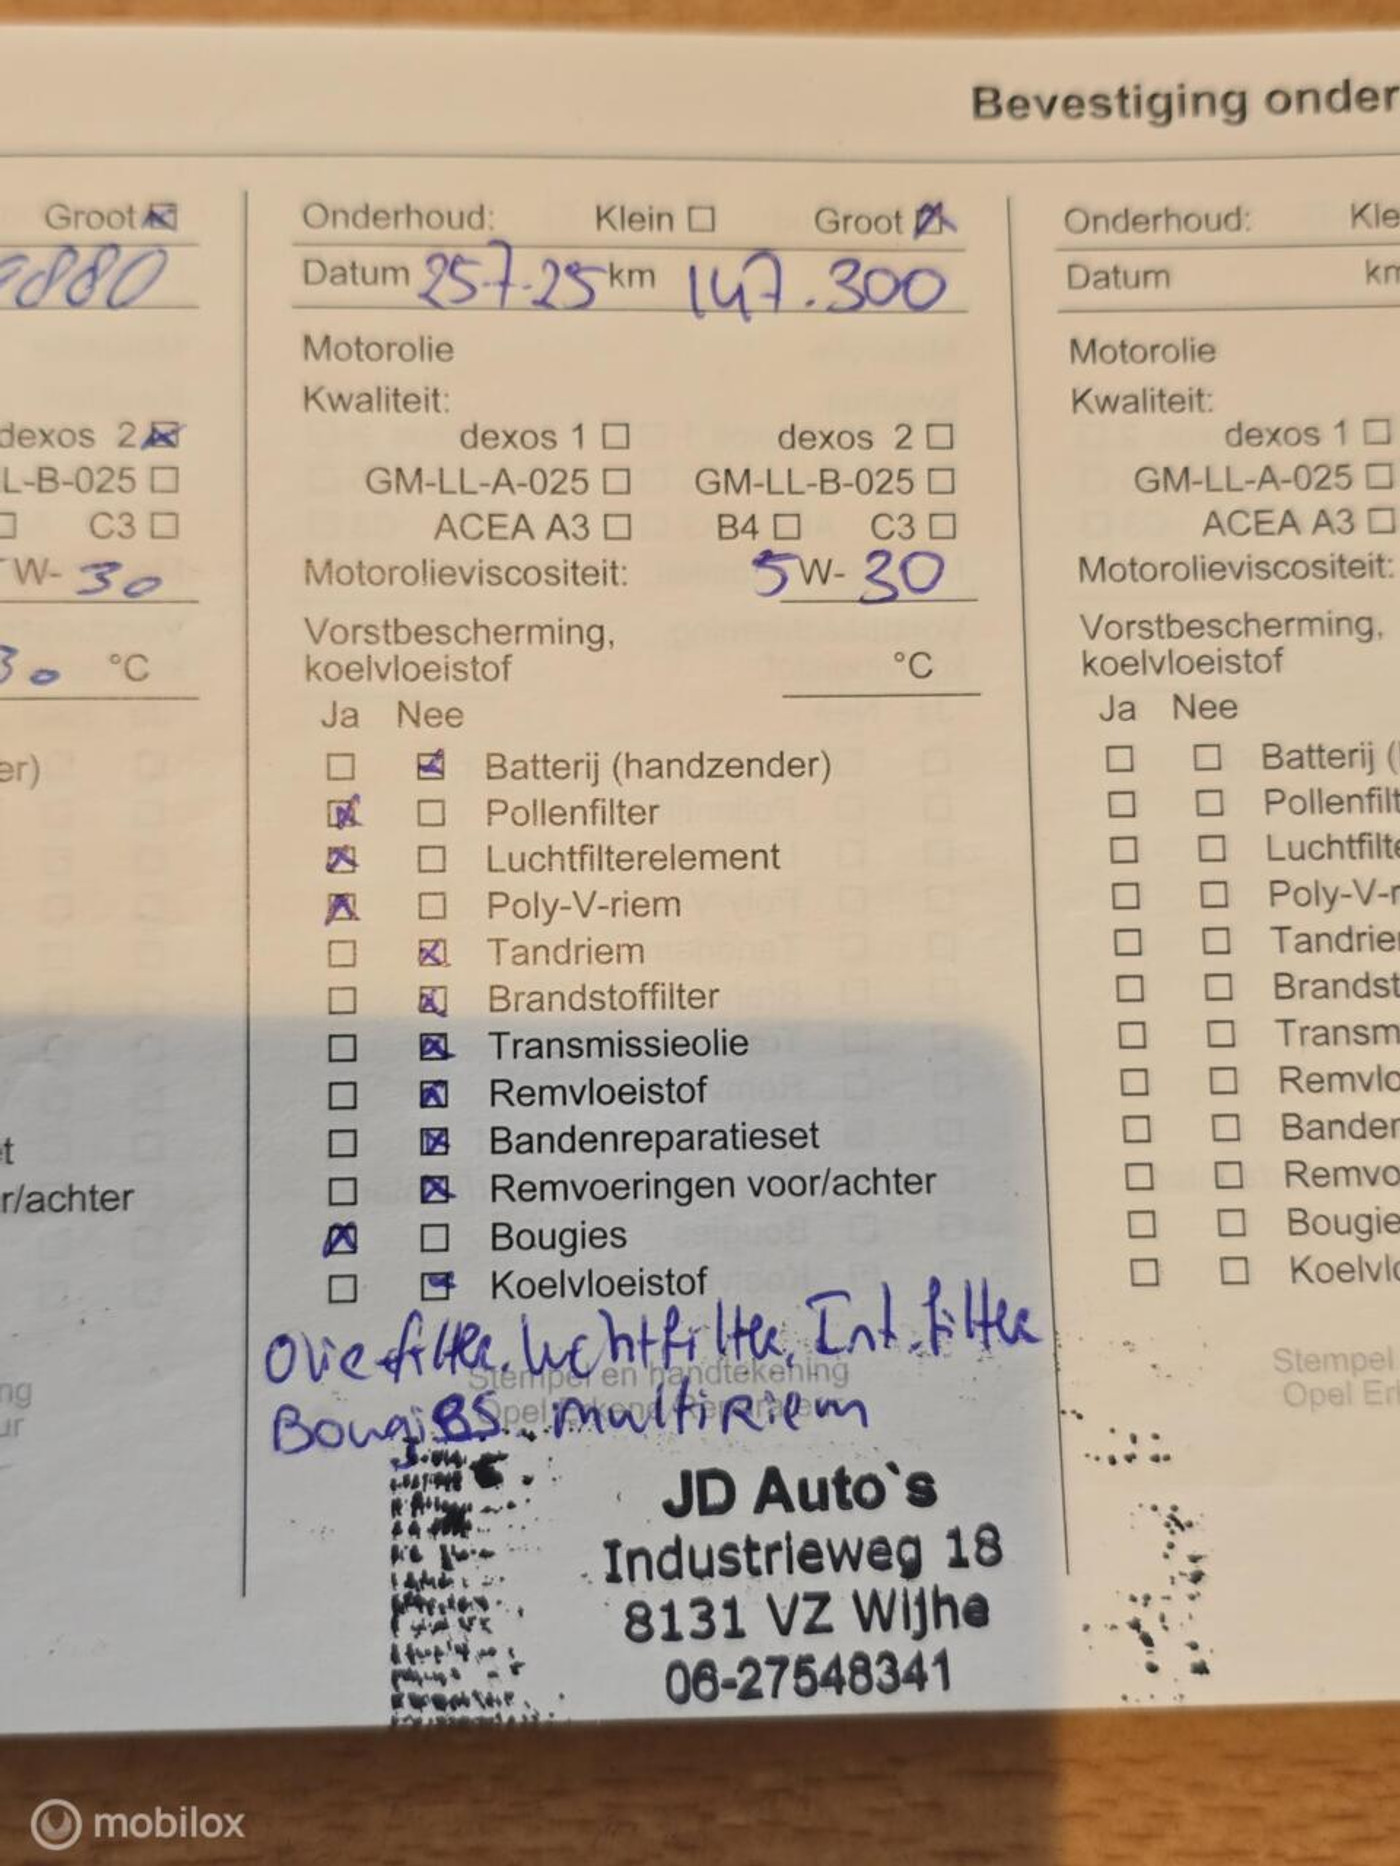 Bevestiging onder
Groot
9880
dexos 2
L-B-025
C3
W- 30
30 °C
er)
et
r/achter
ng
ur
Onderhoud: Klein Groot
Datum 25-7-25 km 147.300
Motorolie
Kwaliteit:
dexos 1 dexos 2
GM-LL-A-025 GM-LL-B-025
ACEA A3 B4 C3
Motorolieviscositeit: 5W- 30
Vorstbescherming,
koelvloeistof °C
Ja Nee
Batterij (handzender)
Pollenfilter
Luchtfilterelement
Poly-V-riem
Tandriem
Brandstoffilter
Transmissieolie
Remvloeistof
Bandenreparatieset
Remvoeringen voor/achter
Bougies
Koelvloeistof
Oliefilter, luchtfilter, Int.filter
Stempel en handtekening
Bougies multiriem
Opel Erkend Reparateur
JD Auto`s
Industrieweg 18
8131 VZ Wijhe
06-27548341
Onderhoud: Kle
Datum km
Motorolie
Kwaliteit:
dexos 1
GM-LL-A-025
ACEA A3
Motorolieviscositeit:
Vorstbescherming,
koelvloeistof
Ja Nee
Batterij (
Pollenfilt
Luchtfilte
Poly-V-r
Tandrie
Brandst
Transm
Remvlo
Banden
Remvo
Bougie
Koelvlo
Stempel
Opel Erl
mobilox